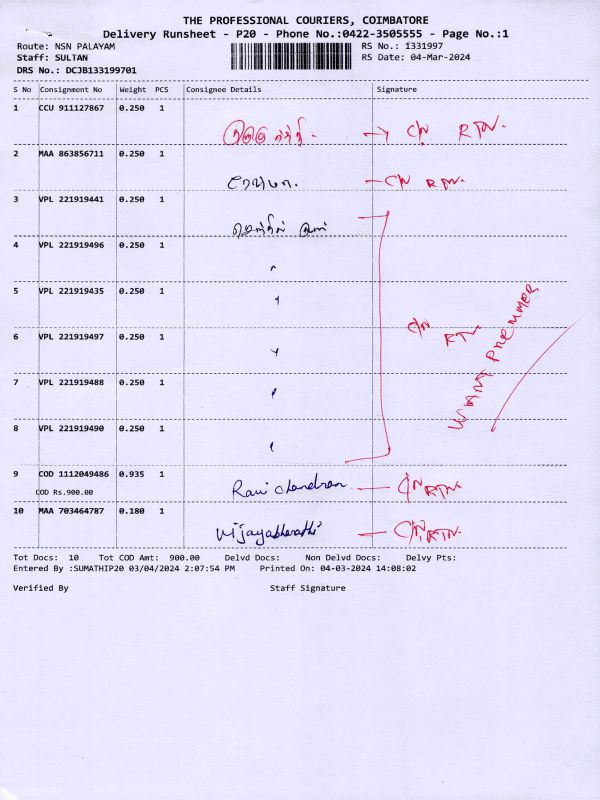 THE PROFESSIONAL COURIERS, COIMBATORE
Delivery Runsheet - P20 - Phone No.:0422-3505555 - Page No.:1
Route: NSN PALAYAM RS No.: 1331997
Staff: SULTAN RS Date: 04-Mar-2024
DRS No.: DCJB133199701
S No Consignment No Weight PCS Consignee Details Signature
1 CCU 911127867 0.250 1
→ C/N RTN.
2 MAA 863856711 0.250 1
— C/N RTN.
3 VPL 221919441 0.250 1
4 VPL 221919496 0.250 1
5 VPL 221919435 0.250 1
6 VPL 221919497 0.250 1
C/N RTN
7 VPL 221919488 0.250 1
8 VPL 221919490 0.250 1
9 COD 1112049486 0.935 1
COD Rs.900.00 Ravi chandran — C/N RTN.
10 MAA 703464787 0.180 1
Vijayabharathi — C/N, RTN.
Tot Docs: 10 Tot COD Amt: 900.00 Delvd Docs: Non Delvd Docs: Delvy Pts:
Entered By :SUMATHIP20 03/04/2024 2:07:54 PM Printed On: 04-03-2024 14:08:02
Verified By Staff Signature